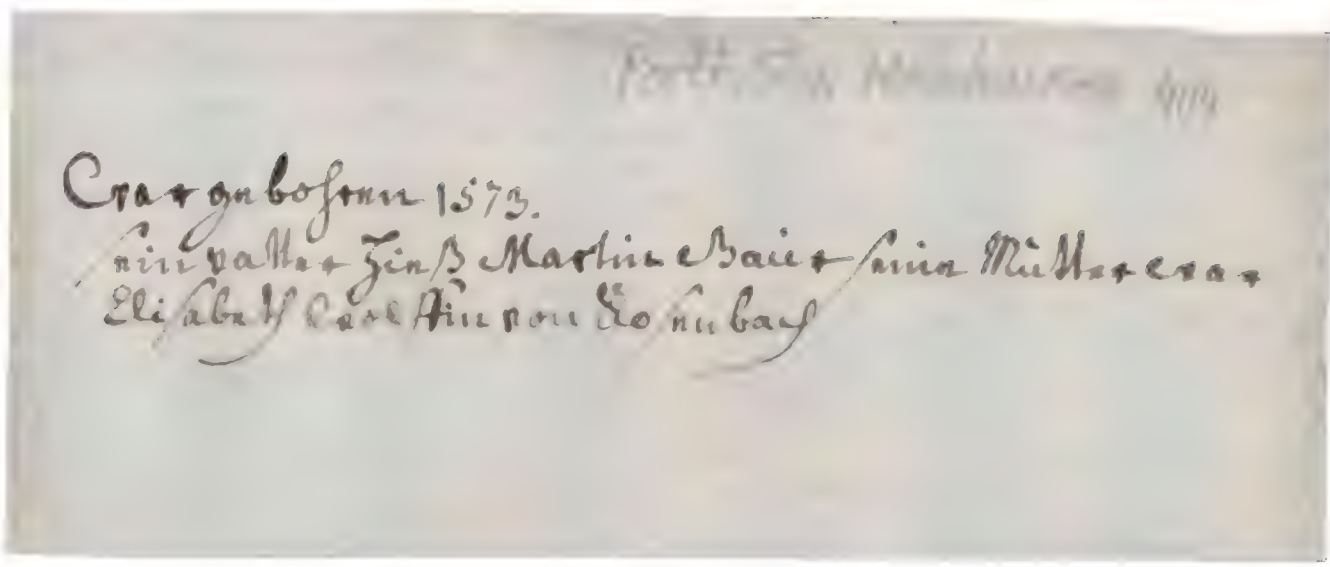 War gebohren 1573.
sein vatter hieß Martin Baier seine Mutter war
Elisabeth Wolffin von Rosenbach